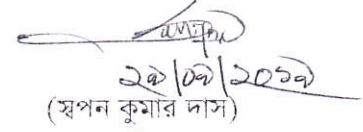 ২৯/০৯/২০১৯
(স্বপন কুমার দাস)